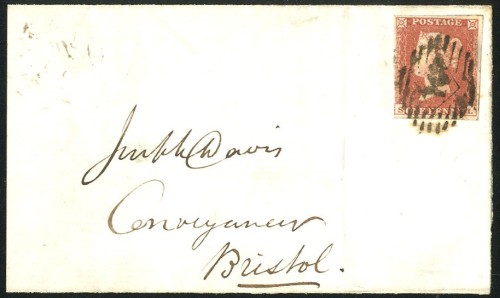 POSTAGE
ONE PENNY
Davis
Conveyancer
Bristol.